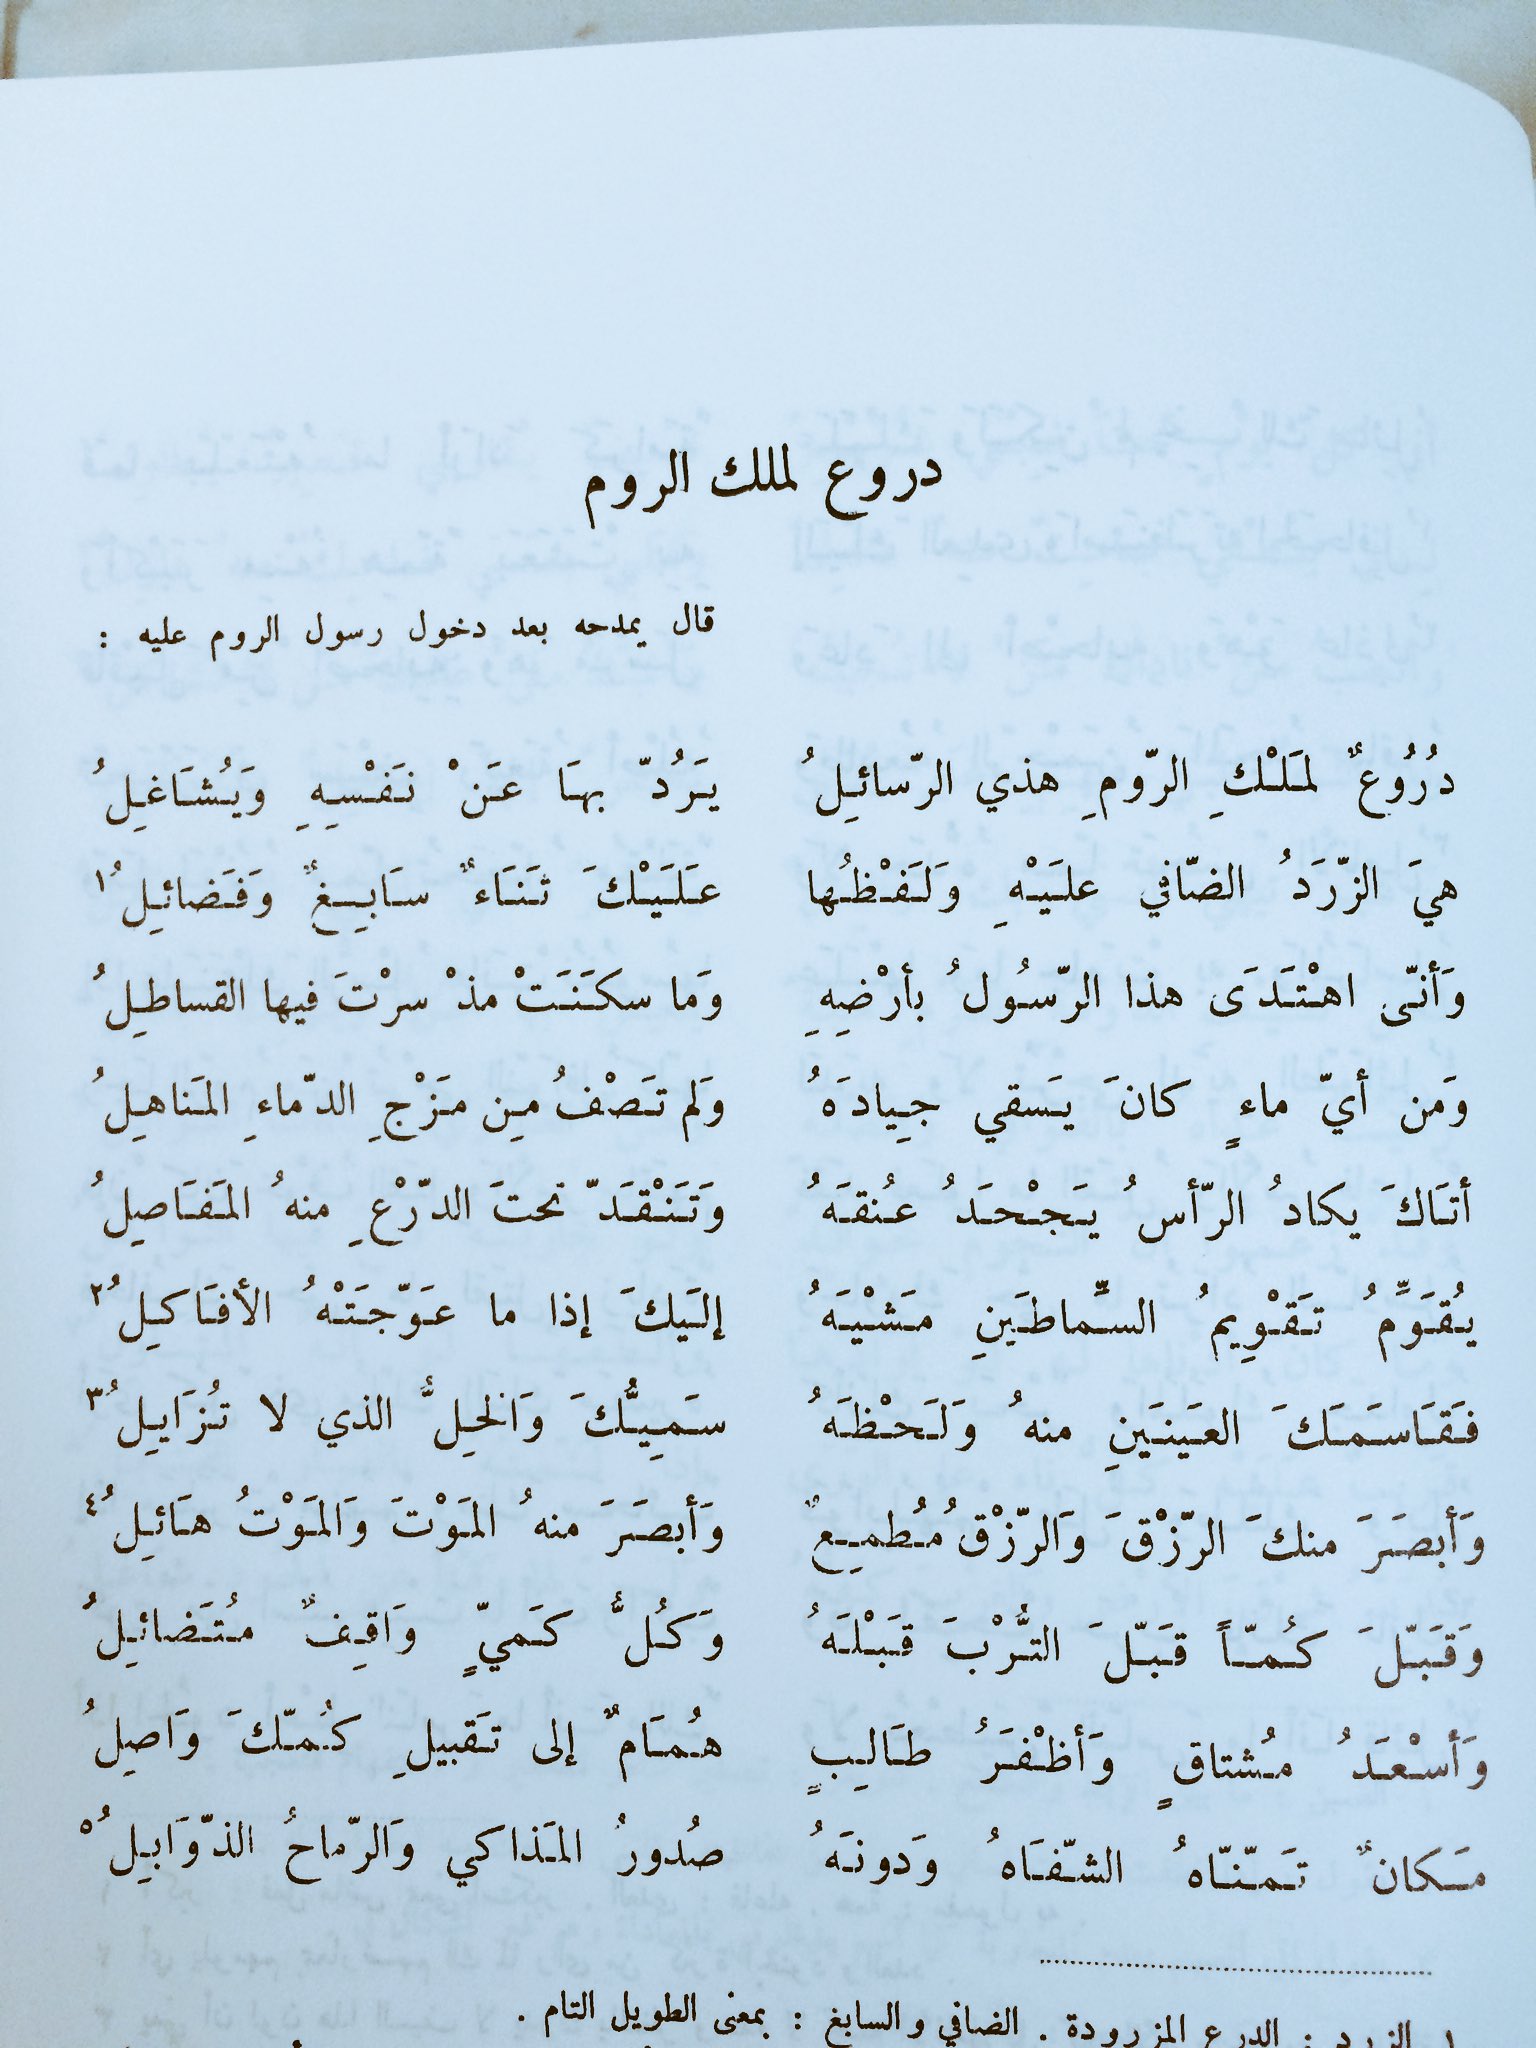 دروع لملك الروم
قال يمدحه بعد دخول رسول الروم عليه :
دُرُوعٌ لمَلْكِ الرّومِ هذي الرّسائِلُ يَرُدّ بهَا عَنْ نَفْسِهِ وَيُشَاغِلُ
هيَ الزّرَدُ الضّافي علَيْهِ وَلَفْظُها عَلَيْكَ ثَنَاءٌ سَابِغٌ وَفَضائِلُ١
وَأنّى اهْتَدَى هذا الرّسُولُ بأرْضِهِ وَما سكَنَتْ مذْ سرْتَ فيها القساطِلُ
وَمن أيّ ماءٍ كانَ يَسقي جِيادَهُ وَلم تَصْفُ مِن مَزْجِ الدّماءِ المَناهِلُ
أتَاكَ يكادُ الرّأسُ يَجْحَدُ عُنقَهُ وَتَنْقَدّ تحتَ الدّرْعِ منهُ المَفَاصِلُ
يُقَوِّمُ تَقْوِيمُ السِّماطَينِ مَشْيَهُ إلَيكَ إذا ما عَوّجَتْهُ الأفَاكِلُ٢
فَقَاسَمَكَ العَينَينِ منهُ وَلَحْظَهُ سَمِيُّكَ وَالخِلُّ الذي لا تُزَايِلُ٣
وَأبصَرَ منكَ الرّزْقَ وَالرّزْقُ مُطمِعٌ وَأبصَرَ منهُ المَوْتَ وَالمَوْتُ هَائِلُ٤
وَقَبّلَ كُمّاً قَبّلَ التُّرْبَ قَبْلَهُ وَكُلُّ كَميٍّ وَاقِفٌ مُتَضائِلُ
وَأسْعَدُ مُشتاقٍ وَأظْفَرُ طَالِبٍ هُمَامٌ إلى تَقبيلِ كُمّكَ وَاصِلُ
مَكانٌ تَمَنّاهُ الشّفَاهُ وَدونَهُ صُدورُ المَذاكي وَالرّماحُ الذّوَابِلُ٥
١ الزرد : الدرع المزرودة . الضافي والسابغ : بمعنى الطويل التام .